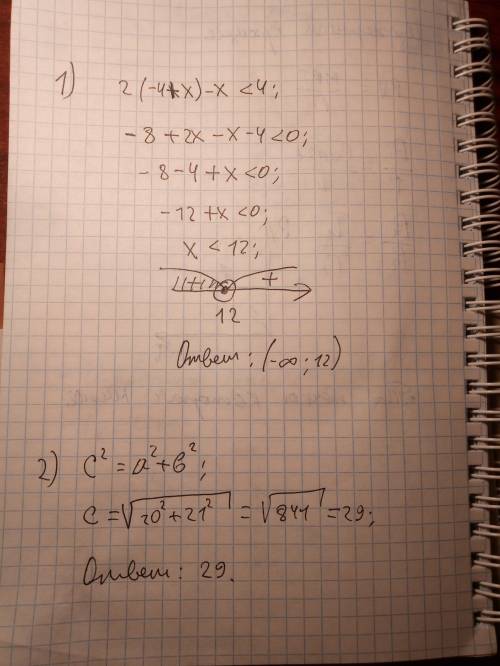 1) 2(-4+x)-x<4;
-8+2x-x-4<0;
-8-4+x<0;
-12+x<0;
x<12;
+
12
Ответ: (-∞; 12)
2) c²=a²+b²;
c=√20²+21²=√841=29;
Ответ: 29.